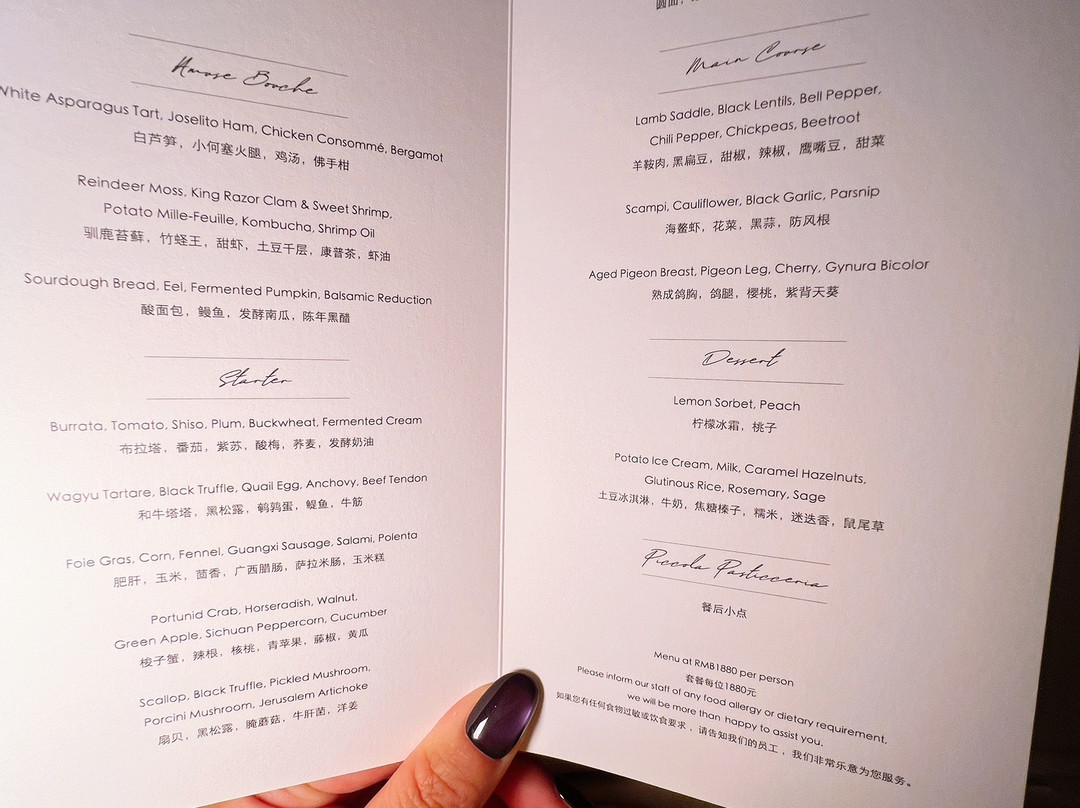 Amuse Bouche
White Asparagus Tart, Joselito Ham, Chicken Consommé, Bergamot
白芦笋，小何塞火腿，鸡汤，佛手柑
Reindeer Moss, King Razor Clam & Sweet Shrimp,
Potato Mille-Feuille, Kombucha, Shrimp Oil
驯鹿苔藓，竹蛏王，甜虾，土豆千层，康普茶，虾油
Sourdough Bread, Eel, Fermented Pumpkin, Balsamic Reduction
酸面包，鳗鱼，发酵南瓜，陈年黑醋
Starter
Burrata, Tomato, Shiso, Plum, Buckwheat, Fermented Cream
布拉塔，番茄，紫苏，酸梅，荞麦，发酵奶油
Wagyu Tartare, Black Truffle, Quail Egg, Anchovy, Beef Tendon
和牛塔塔，黑松露，鹌鹑蛋，鳀鱼，牛筋
Foie Gras, Corn, Fennel, Guangxi Sausage, Salami, Polenta
肥肝，玉米，茴香，广西腊肠，萨拉米肠，玉米糕
Portunid Crab, Horseradish, Walnut,
Green Apple, Sichuan Peppercorn, Cucumber
梭子蟹，辣根，核桃，青苹果，藤椒，黄瓜
Scallop, Black Truffle, Pickled Mushroom,
Porcini Mushroom, Jerusalem Artichoke
扇贝，黑松露，腌蘑菇，牛肝菌，洋姜
Main Course
Lamb Saddle, Black Lentils, Bell Pepper,
Chili Pepper, Chickpeas, Beetroot
羊鞍肉, 黑扁豆，甜椒，辣椒，鹰嘴豆，甜菜
Scampi, Cauliflower, Black Garlic, Parsnip
海螯虾，花菜，黑蒜，防风根
Aged Pigeon Breast, Pigeon Leg, Cherry, Gynura Bicolor
熟成鸽胸，鸽腿，樱桃，紫背天葵
Dessert
Lemon Sorbet, Peach
柠檬冰霜，桃子
Potato Ice Cream, Milk, Caramel Hazelnuts,
Glutinous Rice, Rosemary, Sage
土豆冰淇淋，牛奶，焦糖榛子，糯米，迷迭香，鼠尾草
Piccola Pasticceria
餐后小点
Menu at RMB1880 per person
套餐每位1880元
Please inform our staff of any food allergy or dietary requirement,
we will be more than happy to assist you.
如果您有任何食物过敏或饮食要求，请告知我们的员工，我们非常乐意为您服务。